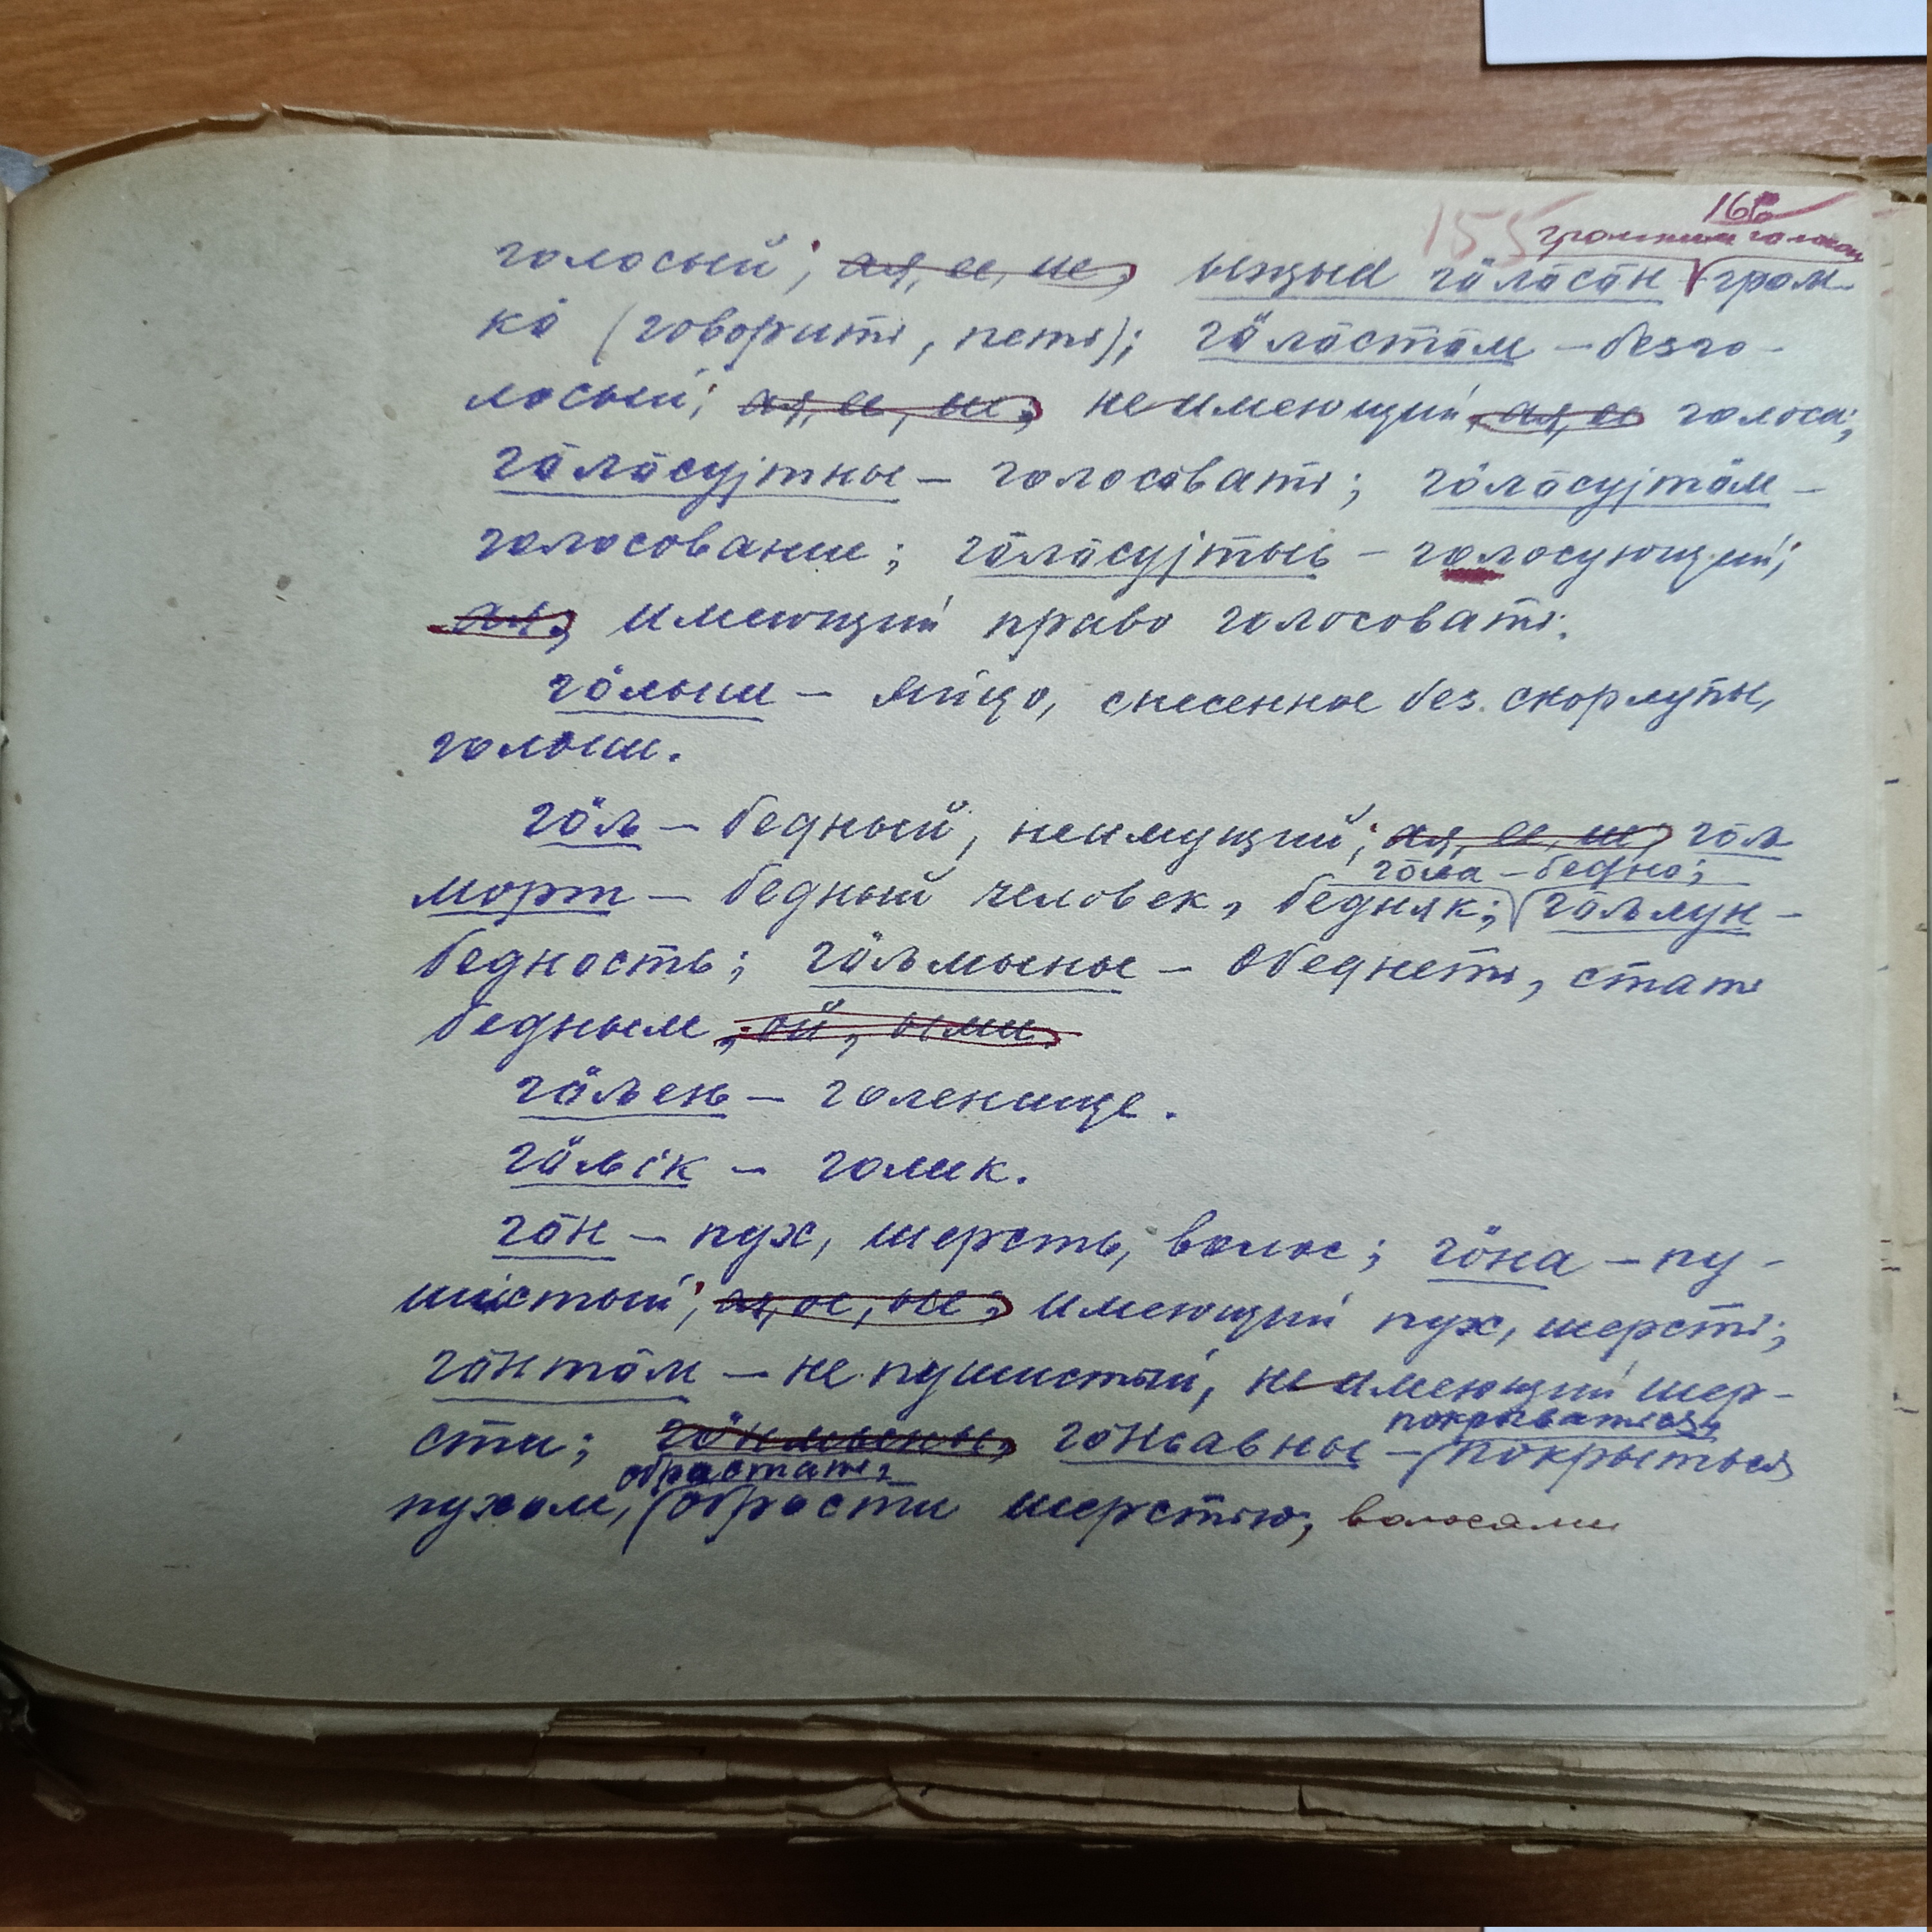 155 166
громким голосом
голосый; ая, ое, ые, ыҗыԁ гӧлӧсӧн гром-
ко (говорить, петь); гӧлӧстӧм – безго-
лосый; ая, ое, ые; не имеющий, ая, ее голоса;
гӧлӧсујтны – голосовать; гӧлӧсујтӧм –
голосование; гӧлӧсујтыԍ – голосующий;
ая, имеющий право голосовать.
гӧлыш – яйцо, снесенное без скорлупы,
голыш.
гӧԉ – бедный, неимущий; ая, ее, ие, гӧԉ
гӧԉа – бедно;
морт – бедный человек, бедняк; гӧԉлун –
бедность; гӧԉмыны – обеднеть, стать
бедным, ой, ыми.
гӧԉеԋ – голенище.
гӧԉік – голик.
гӧн – пух, шерсть, волос; гӧна – пу-
шистый; ая, ое, ые, имеющий пух, шерсть;
гӧнтӧм – не пушистый, не имеющий шер-
покрываться,
сти; гӧнмыны, гӧԋԍавны – покрыться
обрастать,
пухом, обрасти шерстью, волосами